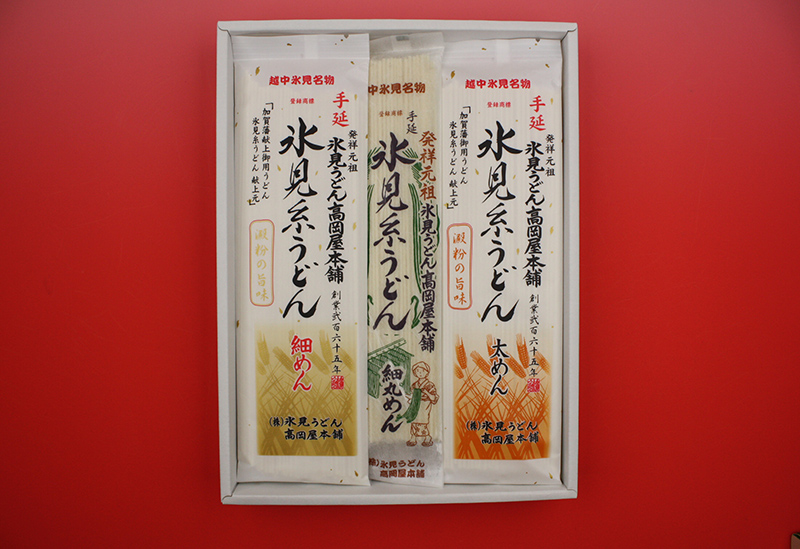 越中氷見名物
登録商標
手延
発祥元祖
氷見うどん高岡屋本舗
氷見糸うどん
「加賀藩献上御用うどん
氷見糸うどん 献上元」
澱粉の旨味
創業弐百六十五年
細めん
(株)氷見うどん
高岡屋本舗
越中氷見名物
登録商標
手延
発祥元祖 氷見うどん高岡屋本舗
氷見糸うどん
細丸めん
(株)氷見うどん
高岡屋本舗
越中氷見名物
登録商標
手延
発祥元祖
氷見うどん高岡屋本舗
氷見糸うどん
「加賀藩献上御用うどん
氷見糸うどん 献上元」
澱粉の旨味
創業弐百六十五年
太めん
(株)氷見うどん
高岡屋本舗